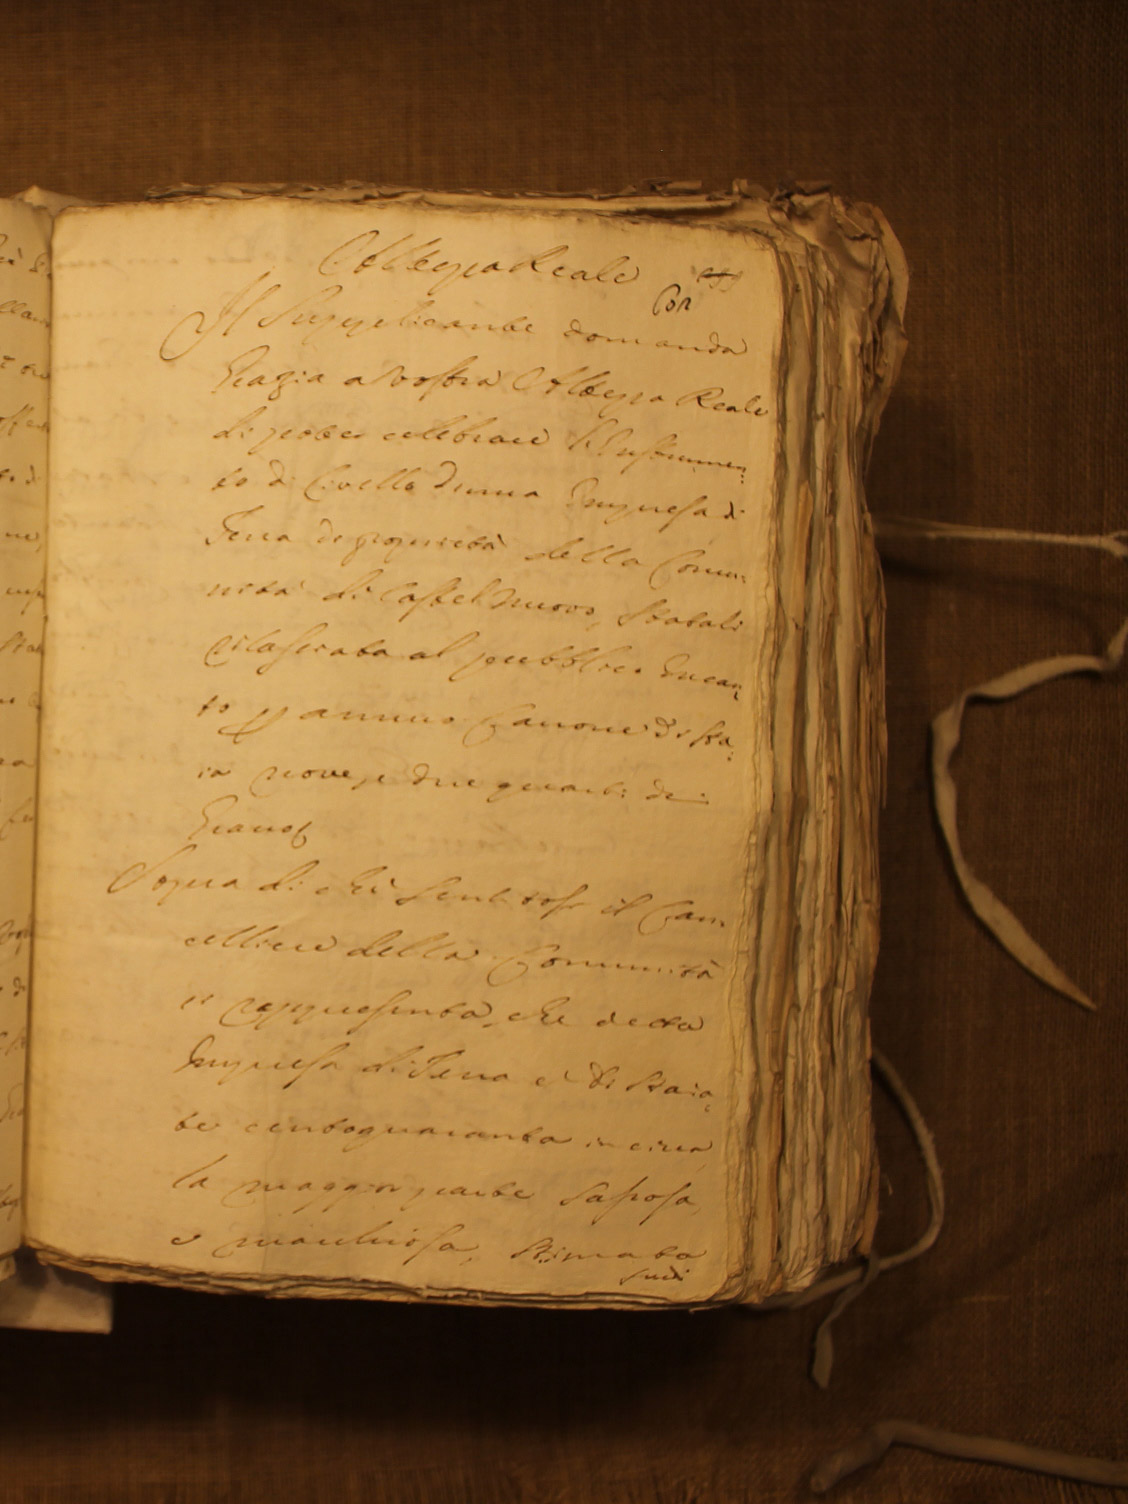 Altezza Reale
Il Supplicante domanda
Grazia a Vostra Altezza Reale
di poter celebrare l'Instrumen:
to di Livello d'una Impresa di
Terra di proprietà della Comu:
nità di Castel Nuovo, statali
rilasciata al pubblico Incan:
to p annuo Canone di sta:
ia nove, e due quarti di
Grano
Sopra di chè sentitosi il Can:
celliere della Comunità
ci rappresenta, che detta
Impresa di Terra è di staia:
te centoquaranta in circa,
la maggior parte sassosa,
e macchiosa, stimata